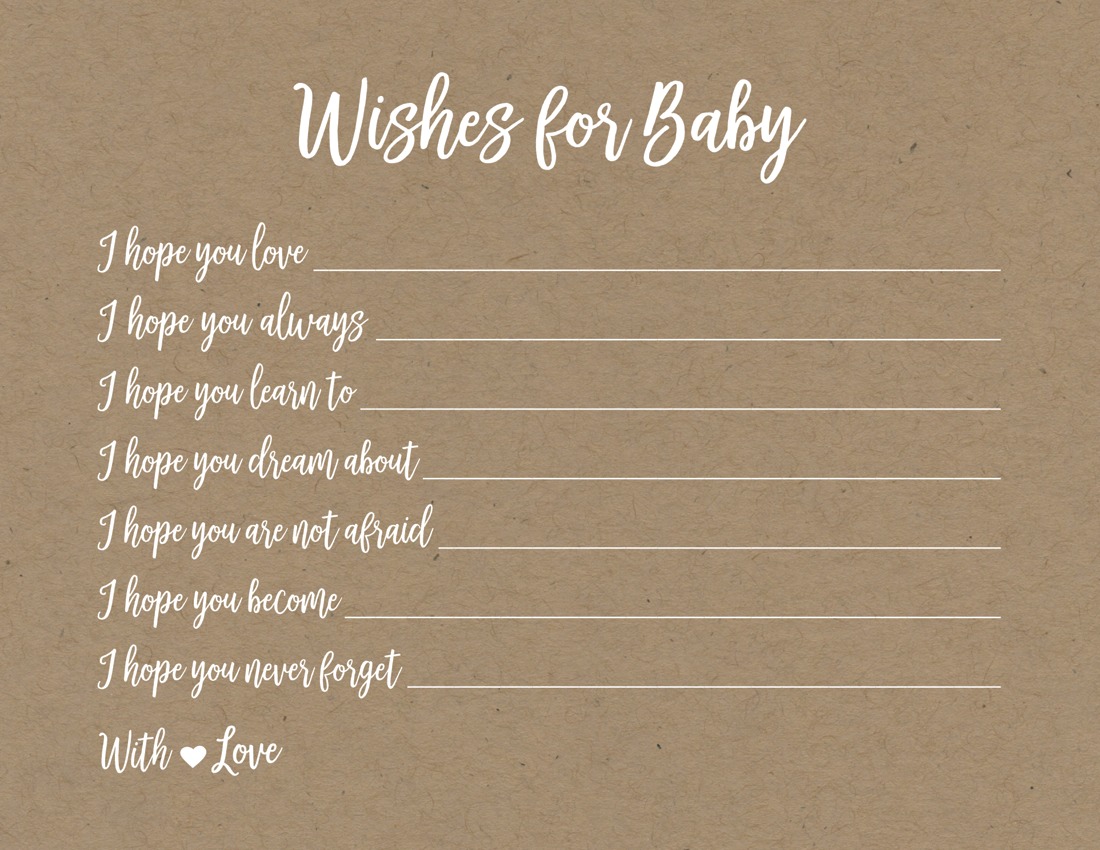 Wishes for Baby
I hope you love
I hope you always
I hope you learn to
I hope you dream about
I hope you are not afraid
I hope you become
I hope you never forget
With ♥ Love